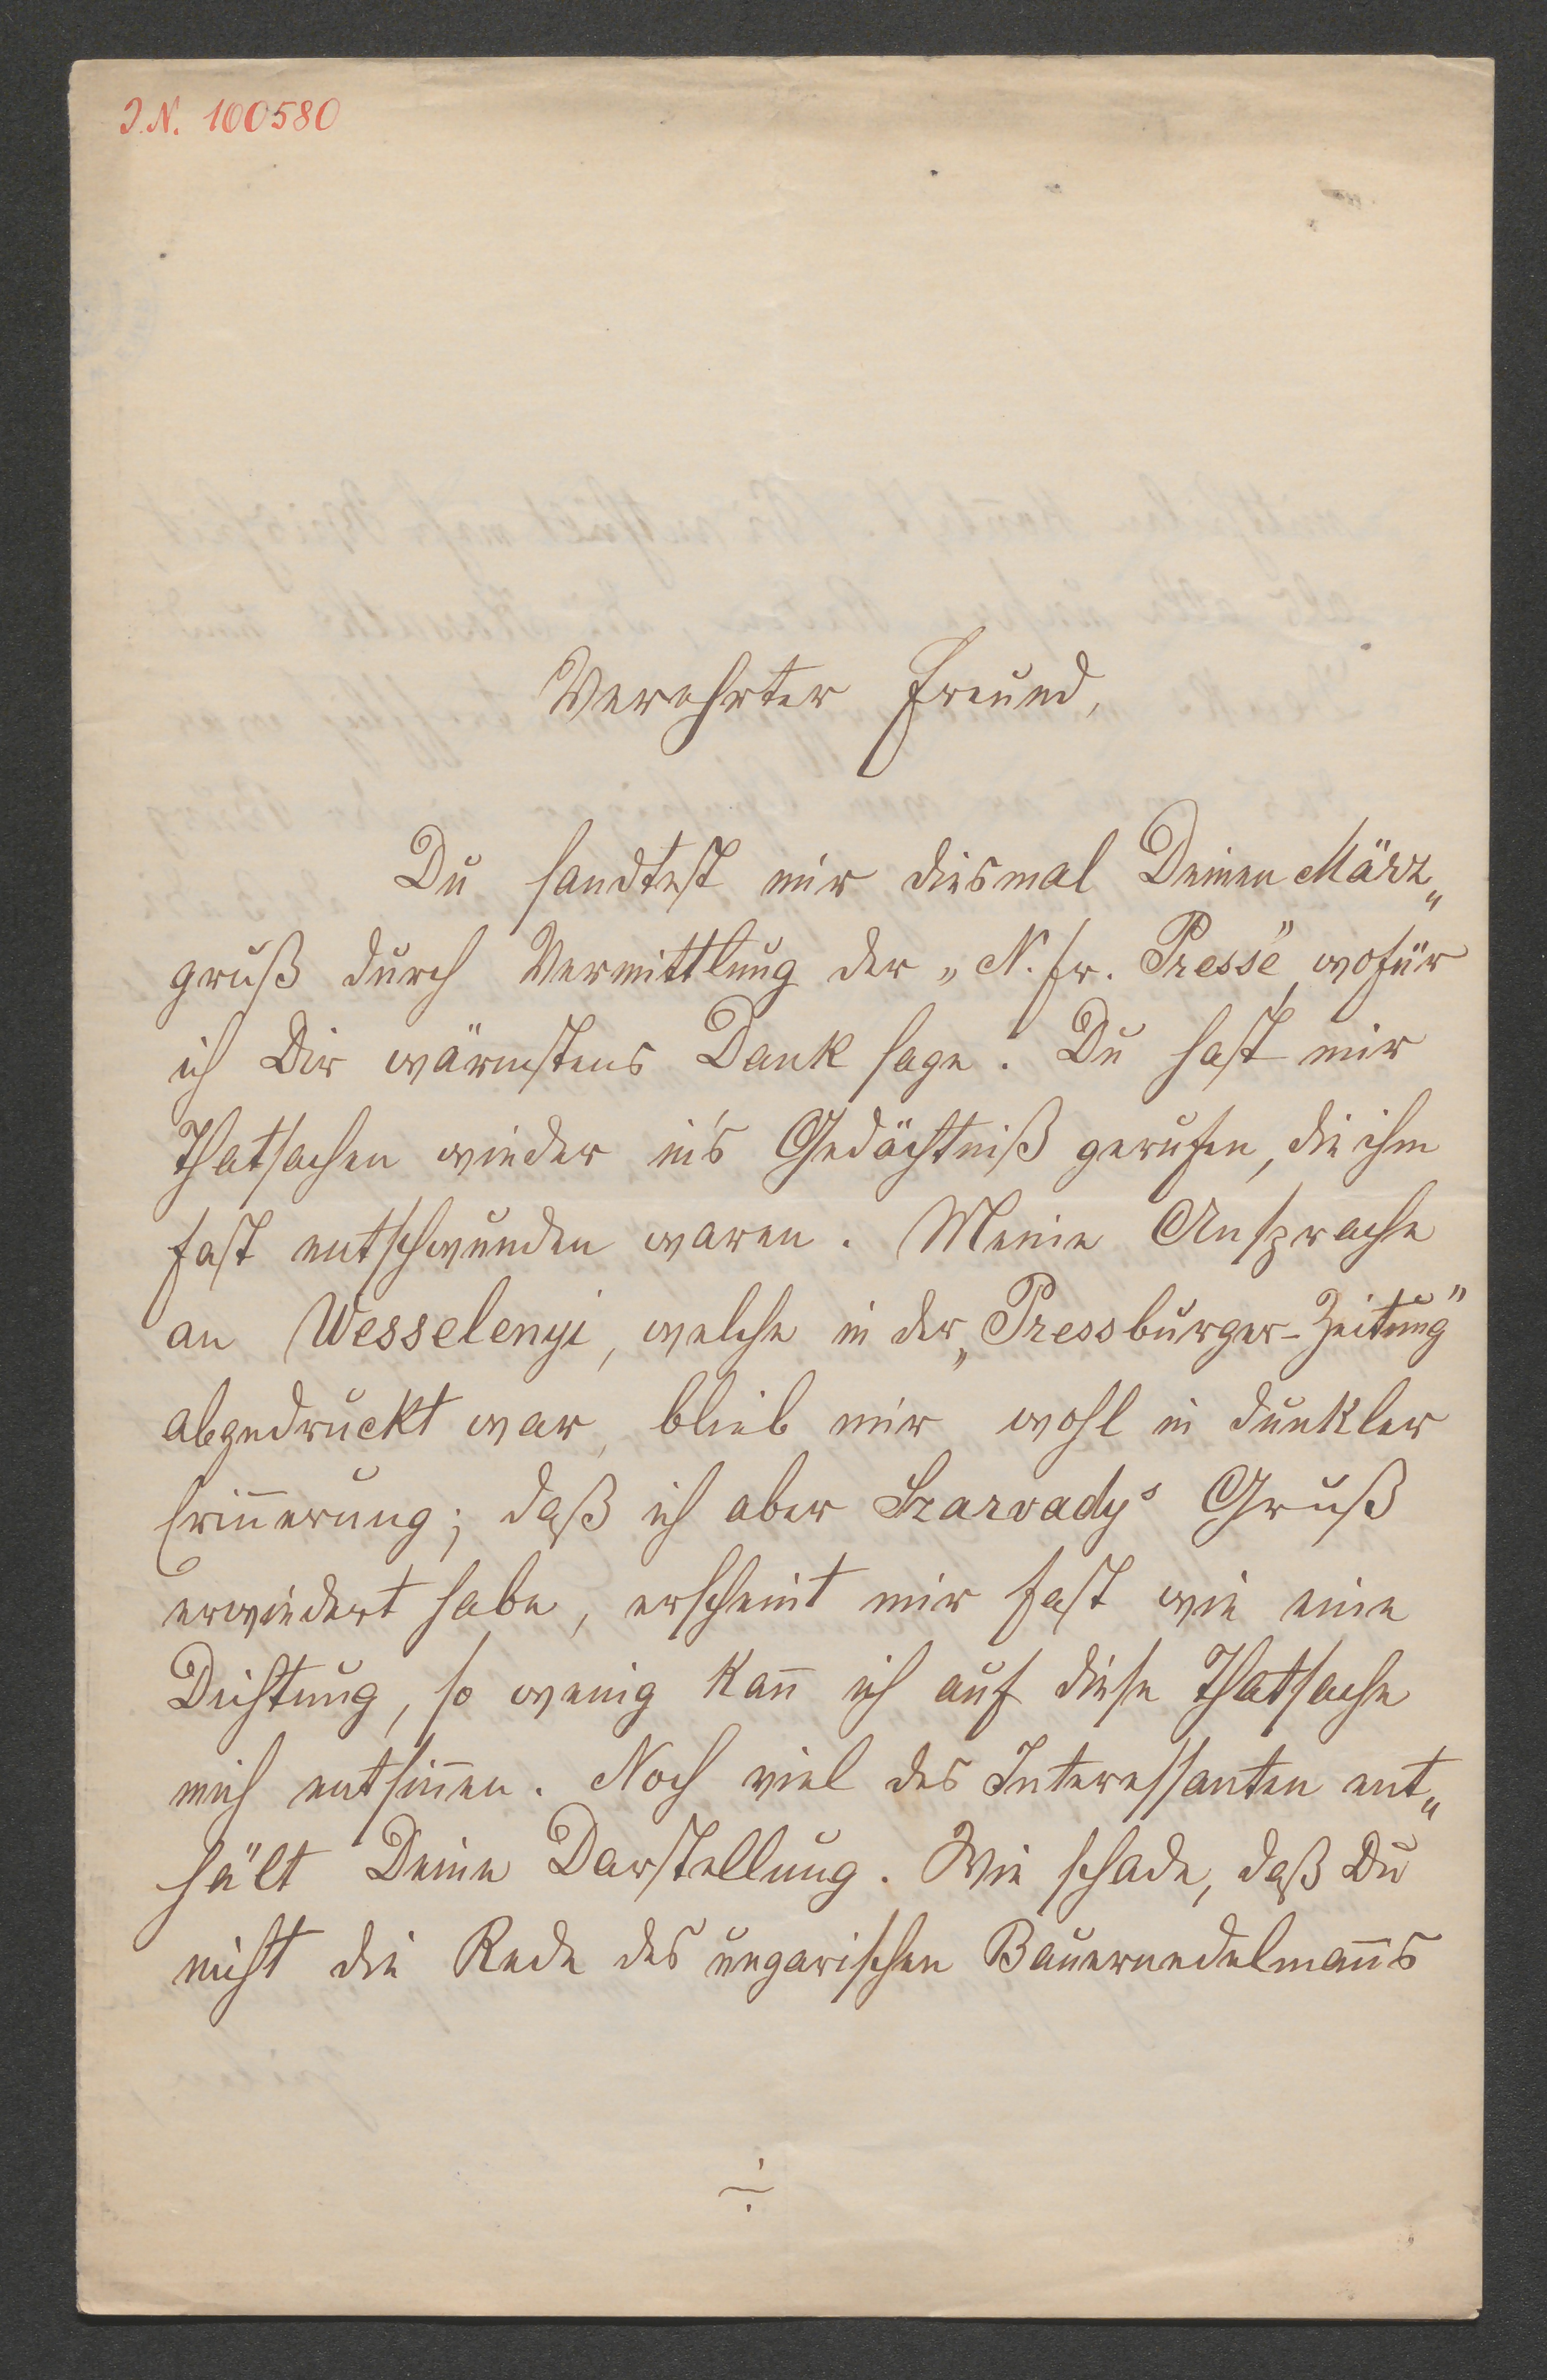 J.N. 100580
Verehrter Freund,
Du sandtest mir diesmal Deinen März„
gruß durch Vermittlung der „N. fr. Presse“, wofür
ich Dir wärmstens Dank sage. Du hast mir
Thatsachen wieder in's Gedächtniß gerufen, die ihm
fast entschwunden waren. Meine Ansprache
an Wesselenyi, welche in der „Pressburger-Zeitung“
abgedruckt war, blieb mir wohl in dunkler
Eriñerung; daß ich aber Szarvadys Gruß
erwiedert habe, erscheint mir fast wie eine
Dichtung, so wenig kañ ich auf diese Thatsache
mich entsiñen. Noch viel des Interessanten ent„
hält Deine Darstellung. Wie schade, daß Du
nicht die Rede des ungarischen Bauernedelmañs
÷